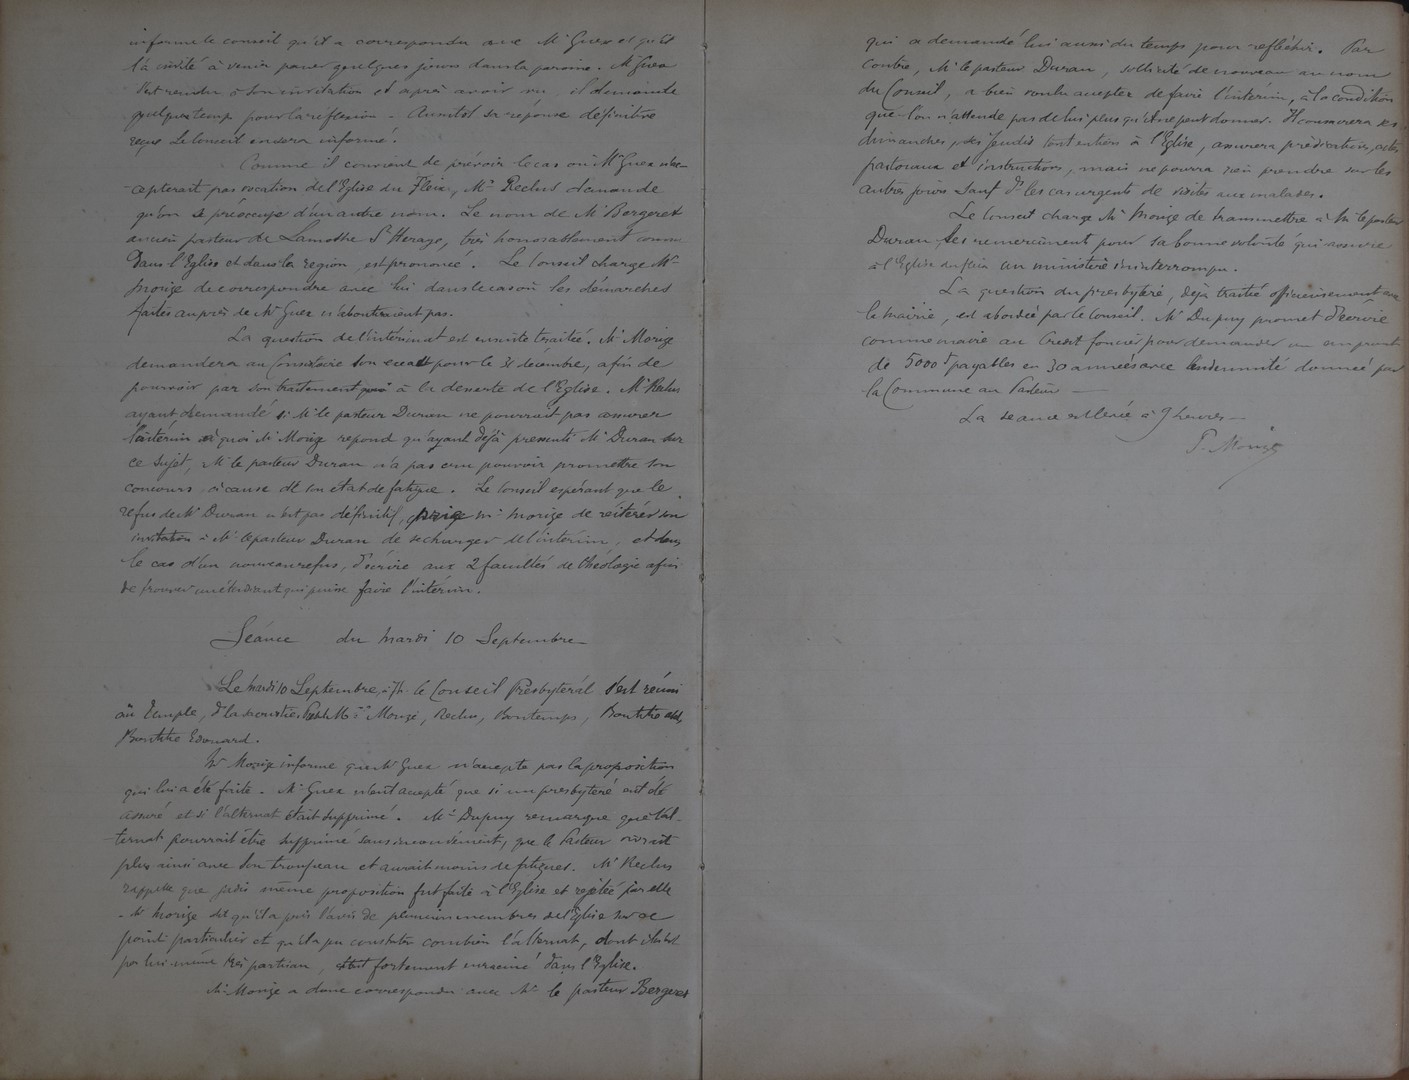 informe le conseil qu'il a correspondu avec Mr Guex et qu'il
l'a invité à venir passer quelques jours dans la paroisse. Mr Guex
s'est rendu à son invitation et après avoir vu, il demande
quelque temps pour la réflexion - Aussitôt sa réponse définitive
reçue le Conseil en sera informé.
Comme il convient de prévoir le cas où Mr Guex n'ac-
-cepterait pas vocation de l'Eglise du Fleix, Mr Reclus demande
qu'on se préoccupe d'un autre nom. Le nom de Mr Bergeret
ancien pasteur de Lamothe St Heraye, très honorablement connu
dans l'Eglise et dans la région, est prononcé. Le Conseil charge Mr
Morize de correspondre avec lui dans le cas où les démarches
faites auprès de Mr Guex n'aboutiraient pas.
La question de l'intérimat est ensuite traitée. Mr Morize
demandera au Consistoire son exeat pour le 31 décembre, afin de
pourvoir par son traitement à la desserte de l'Eglise. Mr Reclus
ayant demandé si Mr le pasteur Duran ne pourrait pas assurer
l'intérim à quoi Mr Morize répond qu'ayant déjà pressenti Mr Duran sur
ce sujet, Mr le pasteur Duran n'a pas cru pouvoir promettre son
concours à cause de son état de fatigue. Le Conseil espérant que le
refus de Mr Duran n'est pas définitif, Mr Morize de réitérer son
invitation à Mr le pasteur Duran de se charger de l'intérim, et dans
le cas d'un nouveau refus, d'écrire aux 2 facultés de théologie afin
de trouver un étudiant qui puisse faire l'intérim.
Séance du Mardi 10 Septembre -
Le Mardi 10 Septembre, à 7h. le Conseil Presbytéral s'est réuni
au Temple, ds la sacristie. Mrs Morize, Reclus, Bontemps,
Edouard.
Mr Morize informe que Mr Guex n'accepte pas la proposition
qui lui a été faite. Mr Guex n'eut accepté que si un presbytère eut été
assuré et si l'alternat était supprimé. Mr Dupuy remarque que l'al-
-ternat pourrait être supprimé sans inconvénient, que le Pasteur vivrait
plus ainsi avec son troupeau et aurait moins de fatigues. Mr Reclus
rappelle que jadis même proposition fut faite à l'Eglise et rejetée par elle
- Mr Morize dit qu'il a pris l'avis de plusieurs membres de l'Eglise sur ce
point particulier et qu'il a pu constater combien l'alternat, dont il n'est
pas lui-même très partisan, était fortement enraciné dans l'Eglise.
Mr Morize a donc correspondu avec Mr le pasteur Bergeret
qui a demandé lui aussi du temps pour réfléchir. Par
Contre, Mr le pasteur Duran, sollicité de nouveau au nom
du Conseil, a bien voulu accepter de faire l'intérim, à la condition
que l'on n'attende pas de lui plus qu'il ne peut donner. Il consacrera ses
dimanches et ses jeudis tout entiers à l'Eglise, assurera prédications, actes
pastoraux et instructions, mais ne pourra rien prendre sur les
autres jours sauf ds les cas urgents de visites aux malades.
Le Conseil charge Mr Morize de transmettre à Mr le pasteur
Duran ses remerciment pour sa bonne volonté qui assure
à l'Eglise du Fleix un ministère ininterrompu.
La question du presbytère, déjà traitée officieusement avec
la mairie, est abordée par le Conseil. Mr Dupuy promet d'écrire
comme maire au Crédit foncier pour demander un emprunt
de 5000 f payables en 30 années avec l'indemnité donnée par
la Commune au Pasteur -
La séance est levée à 9 heures -
P. Morize